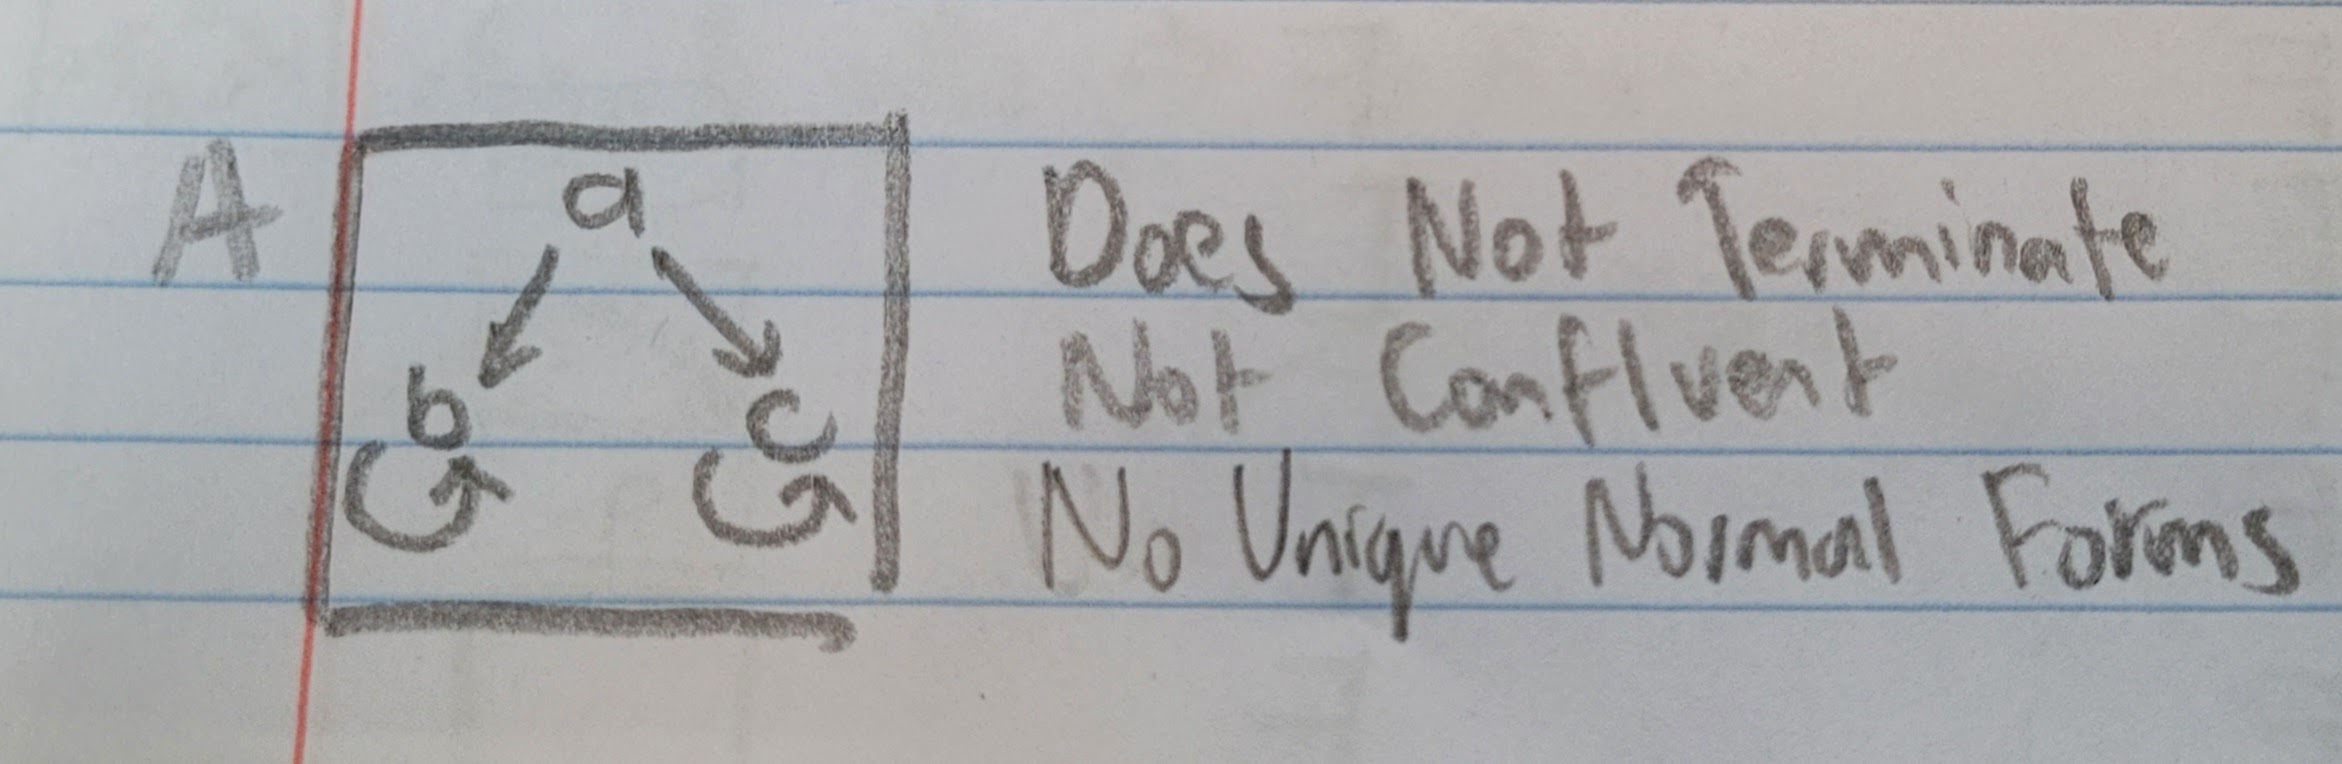 A
a
b c
Does Not Terminate
Not Confluent
No Unique Normal Forms